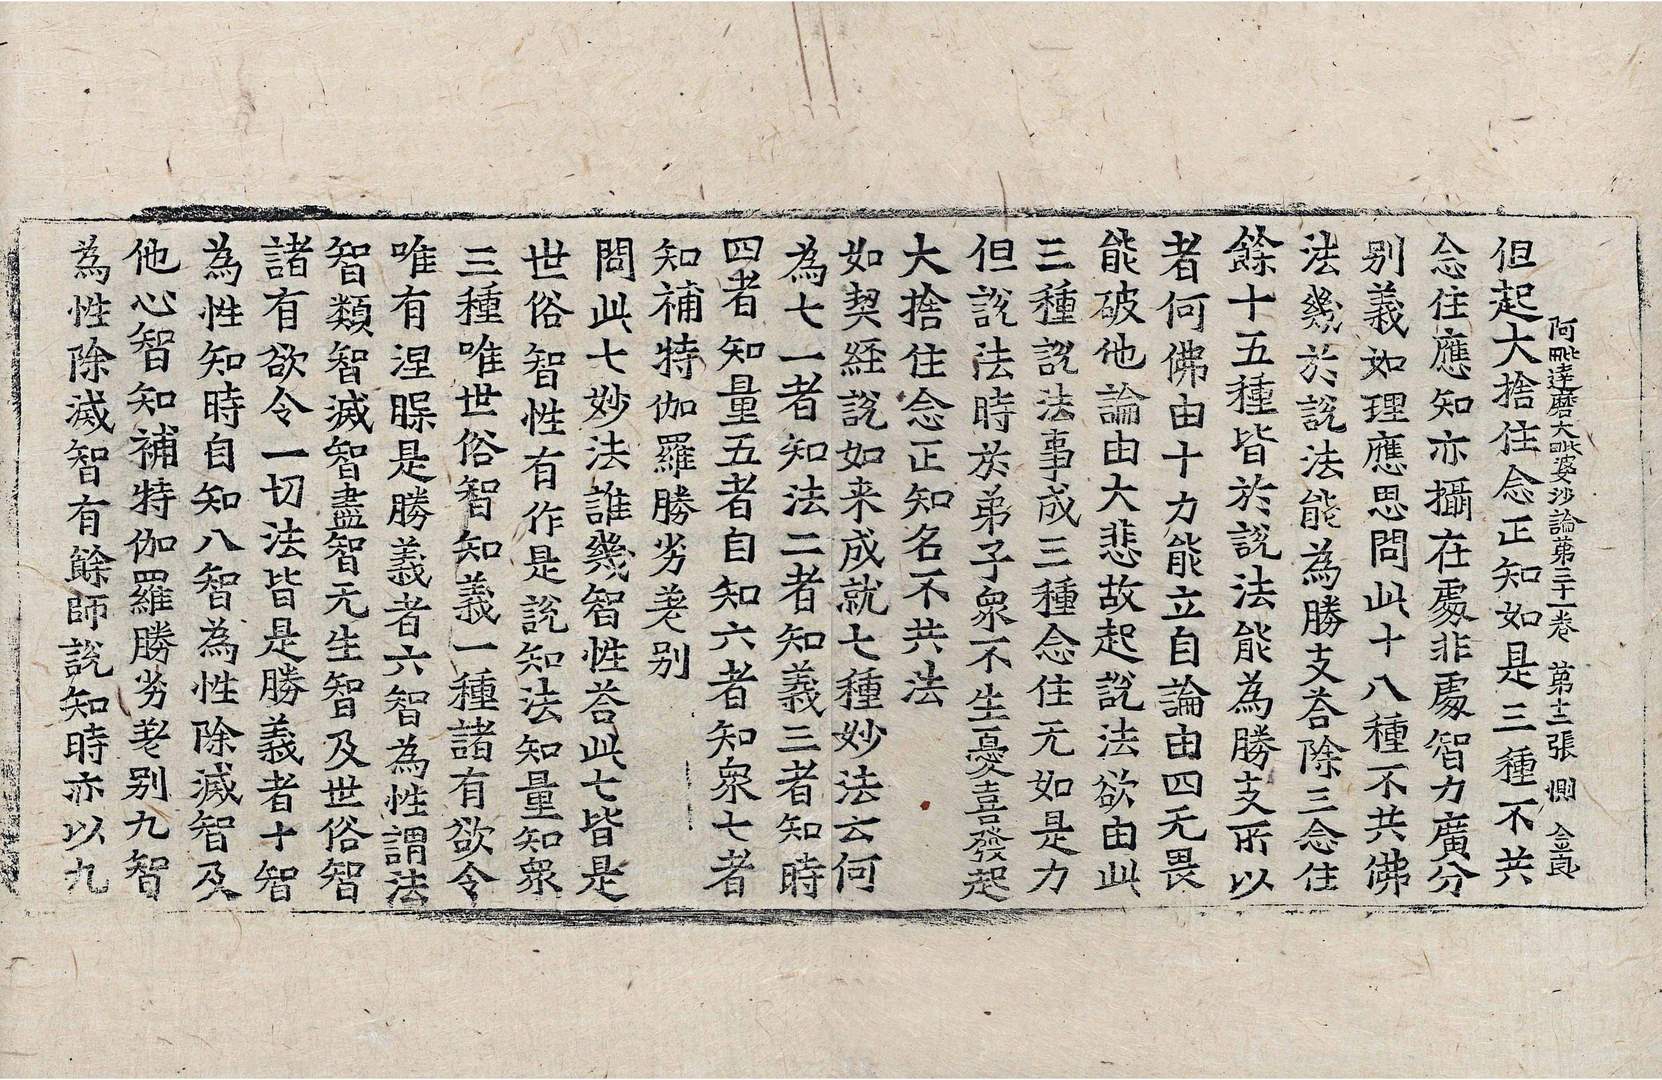 阿毗達磨大毗婆沙論第三十一卷 第十二張 惻 金良
但起大捨住念正知如是三種不共
念住應知亦攝在處非處智力廣分
別義如理應思問此十八種不共佛
法幾於說法能為勝支荅除三念住
餘十五種皆於說法能為勝支所以
者何佛由十力能立自論由四无畏
能破他論由大悲故起說法欲由此
三種說法事成三種念住无如是力
但說法時於弟子衆不生憂喜發起
大捨住念正知名不共法
如契經說如来成就七種妙法云何
為七一者知法二者知義三者知時
四者知量五者自知六者知衆七者
知補特伽羅勝劣差別
問此七妙法誰幾智性荅此七皆是
世俗智性有作是說知法知量知衆
三種唯世俗智知義一種諸有欲令
唯有涅槃是勝義者六智為性謂法
智類智滅智盡智无生智及世俗智
諸有欲令一切法皆是勝義者十智
為性知時自知八智為性除滅智及
他心智知補特伽羅勝劣差別九智
為性除滅智有餘師說知時亦以九